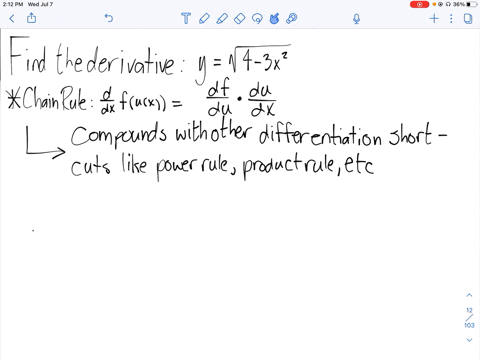 2:12 PM Wed Jul 7
36%
Find the derivative: y = √4-3x²
*Chain Rule: d/dx f(u(x)) = df/du · du/dx
Compounds with other differentiation short-
cuts like power rule, product rule, etc
12
/
103